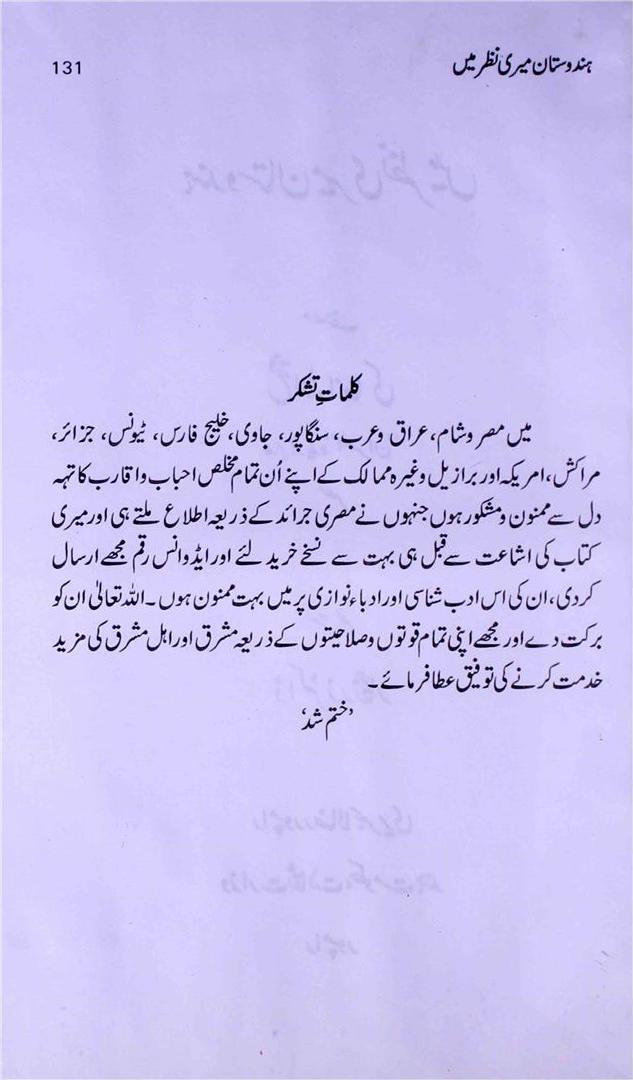 ہندوستان میری نظر میں 131
کلماتِ تشکر
میں مصر وشام، عراق وعرب، سنگاپور، جاوی، خلیج فارس، ٹیونس، جزائر،
مراکش، امریکہ اور برازیل وغیرہ ممالک کے اپنے اُن تمام مخلص احباب واقارب کا تہہ
دل سے ممنون و مشکور ہوں جنہوں نے مصری جرائد کے ذریعہ اطلاع ملتے ہی اور میری
کتاب کی اشاعت سے قبل ہی بہت سے نسخے خرید لئے اور ایڈوانس رقم مجھے ارسال
کردی، ان کی اس ادب شناسی اور ادباء نوازی پر میں بہت ممنون ہوں۔ اللہ تعالیٰ ان کو
برکت دے اور مجھے اپنی تمام قوتوں وصلاحیتوں کے ذریعہ مشرق اور اہل مشرق کی مزید
خدمت کرنے کی توفیق عطا فرمائے۔
’ختم شد‘